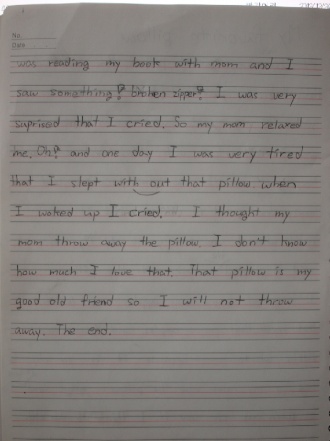 No.
Date
was reading my book with mom and I
saw something? broken zipper? I was very
suprised that I cried. So my mom relaxed
me. Oh? and one day I was very tired
that I slept with out that pillow. when
I waked up I cried. I thought my
mom throw away the pillow. I don't know
how much I love that. That pillow is my
good old friend so I will not throw
away. The end.